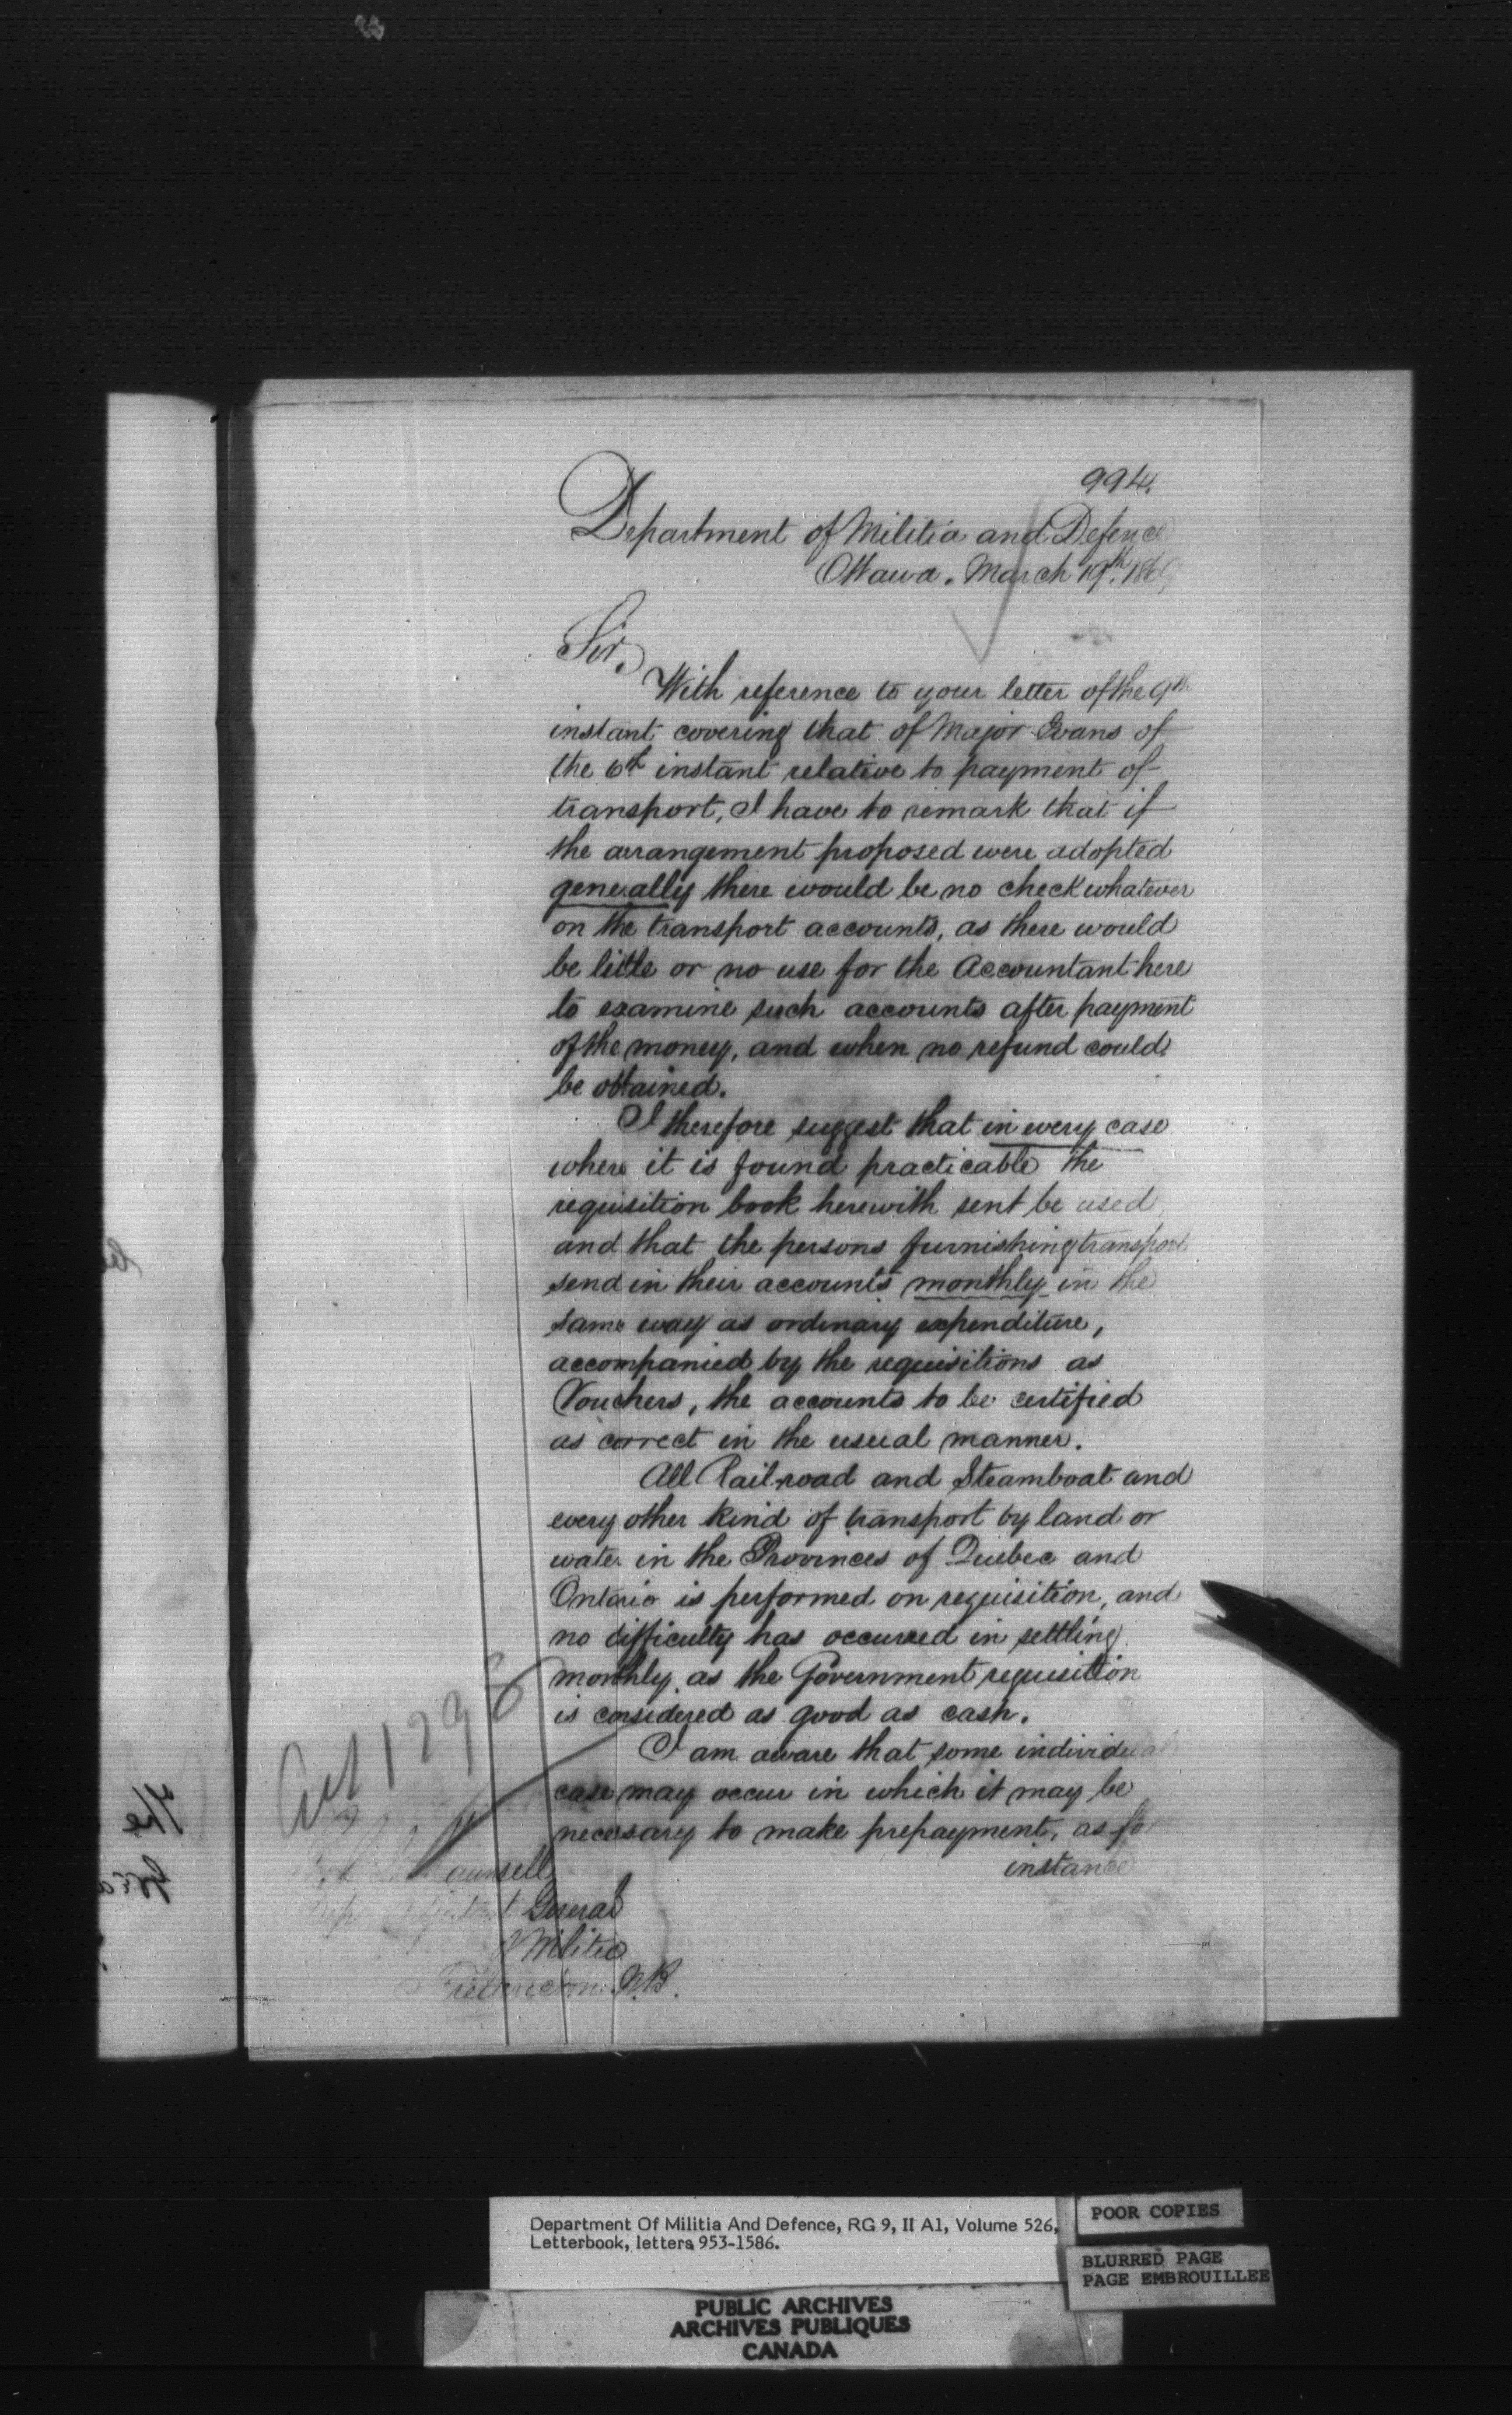 994.
Department of Militia and Defence
Ottawa. March 19th. 1869
Sir,
With reference to your letter of the 9th
instant covering that of Major Evans of
the 6th instant relative to payment of
transport, I have to remark that if
the arrangement proposed were adopted
generally there would be no check whatever
on the transport accounts, as there would
be little or no use for the Accountant here
to examine such accounts after payment
of the money, and when no refund could
be obtained.
I therefore suggest that in every case
where it is found practicable the
requisition book herewith sent be used
and that the persons furnishing transport
send in their accounts monthly in the
same way as ordinary expenditure,
accompanied by the requisitions as
Vouchers, the accounts to be certified
as correct in the usual manner.
All Railroad and Steamboat and
every other kind of transport by land or
water in the Provinces of Quebec and
Ontario is performed on requisition, and
no difficulty has occurred in settling
monthly as the Government requisition
is considered as good as cash.
I am aware that some individual
case may occur in which it may be
necessary to make prepayment, as for
instance
1298
Maunsell
General
Militia
Fredericton N.B.
The
Department Of Militia And Defence, RG 9, II A1, Volume 526,
Letterbook, letters 953-1586.
POOR COPIES
BLURRED PAGE
PAGE EMBROUILLEE
PUBLIC ARCHIVES
ARCHIVES PUBLIQUES
CANADA